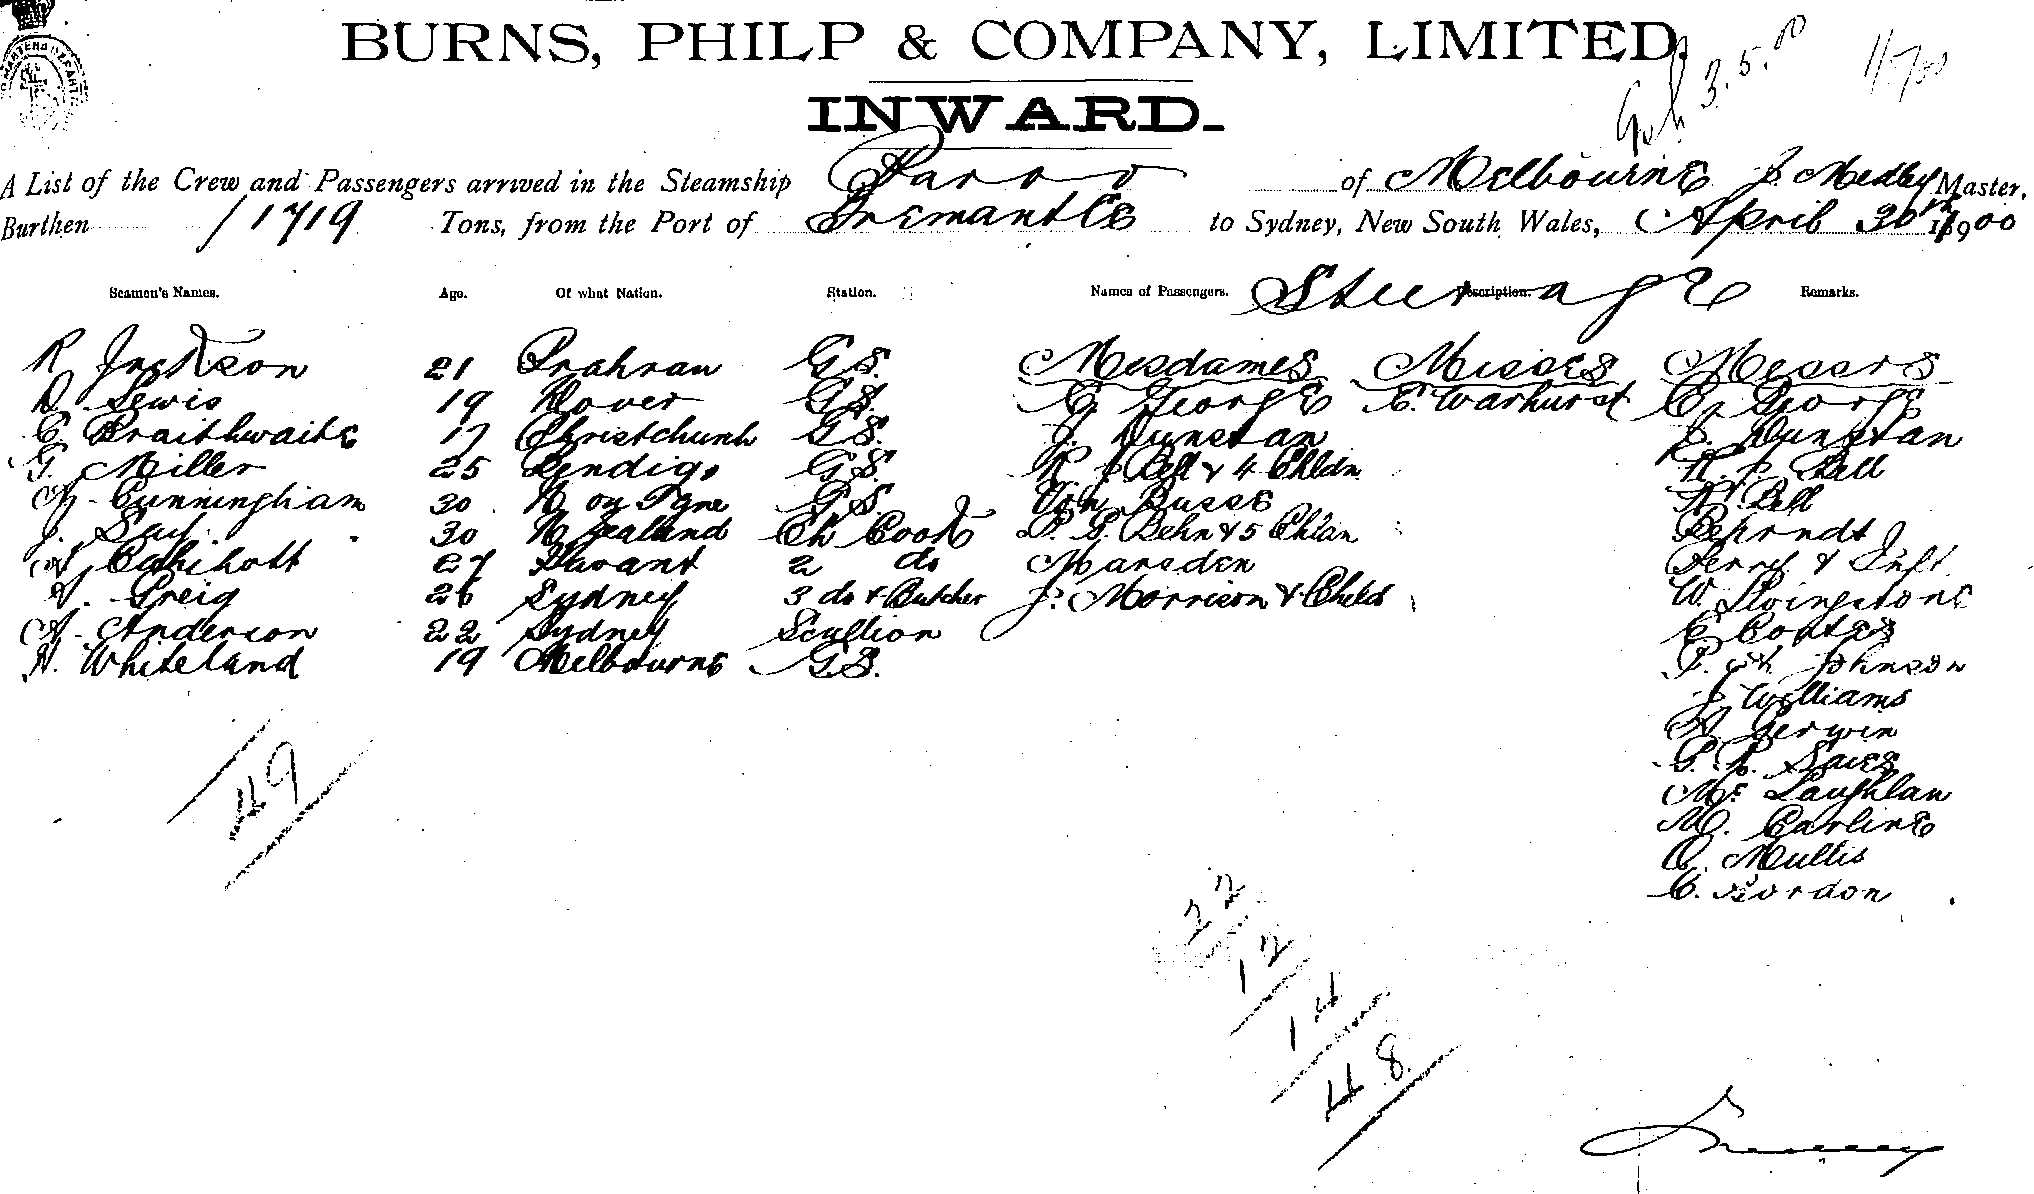 BURNS, PHILP & COMPANY, LIMITED.
3.5.00
INWARD.
A List of the Crew and Passengers arrived in the Steamship Paroo of Melbourne J. Medley Master,
Burthen 1719 Tons, from the Port of Fremantle to Sydney, New South Wales, April 30th 1900
Seamen's Names. Age. Of what Nation. Station. Names of Passengers. Description. Remarks.
Steerage
R Jackson 21 Prahran G.S. Mesdames Misses Messrs
D Lewis 19 Dover G.S. C George E. Warhurst C. George
C Braithwaite 17 Christchurch G.S. J. Dunstan J. Dunstan
G. Miller 25 Bendigo G.S. R J Bell & 4 Chldn R. J. Bell
A. Cunningham 30 N on Tyne G.S. Von Busse Bell
J. 30 N Zealand Ch Cook Behn & 5 Chldn Behrndt J
27 Havant 2 do Marsden
Greig 26 Sydney 3 do & Butcher J. Morrison & Child W. Livingstone
A. Anderson 22 Sydney Scullion C Coates
H. Whiteland 19 Melbourne G.S. Johnson
J Williams
Gerwin
49
Mc Laughlan
M. Carline
Mullis
C. Gordon
22
12
14
48